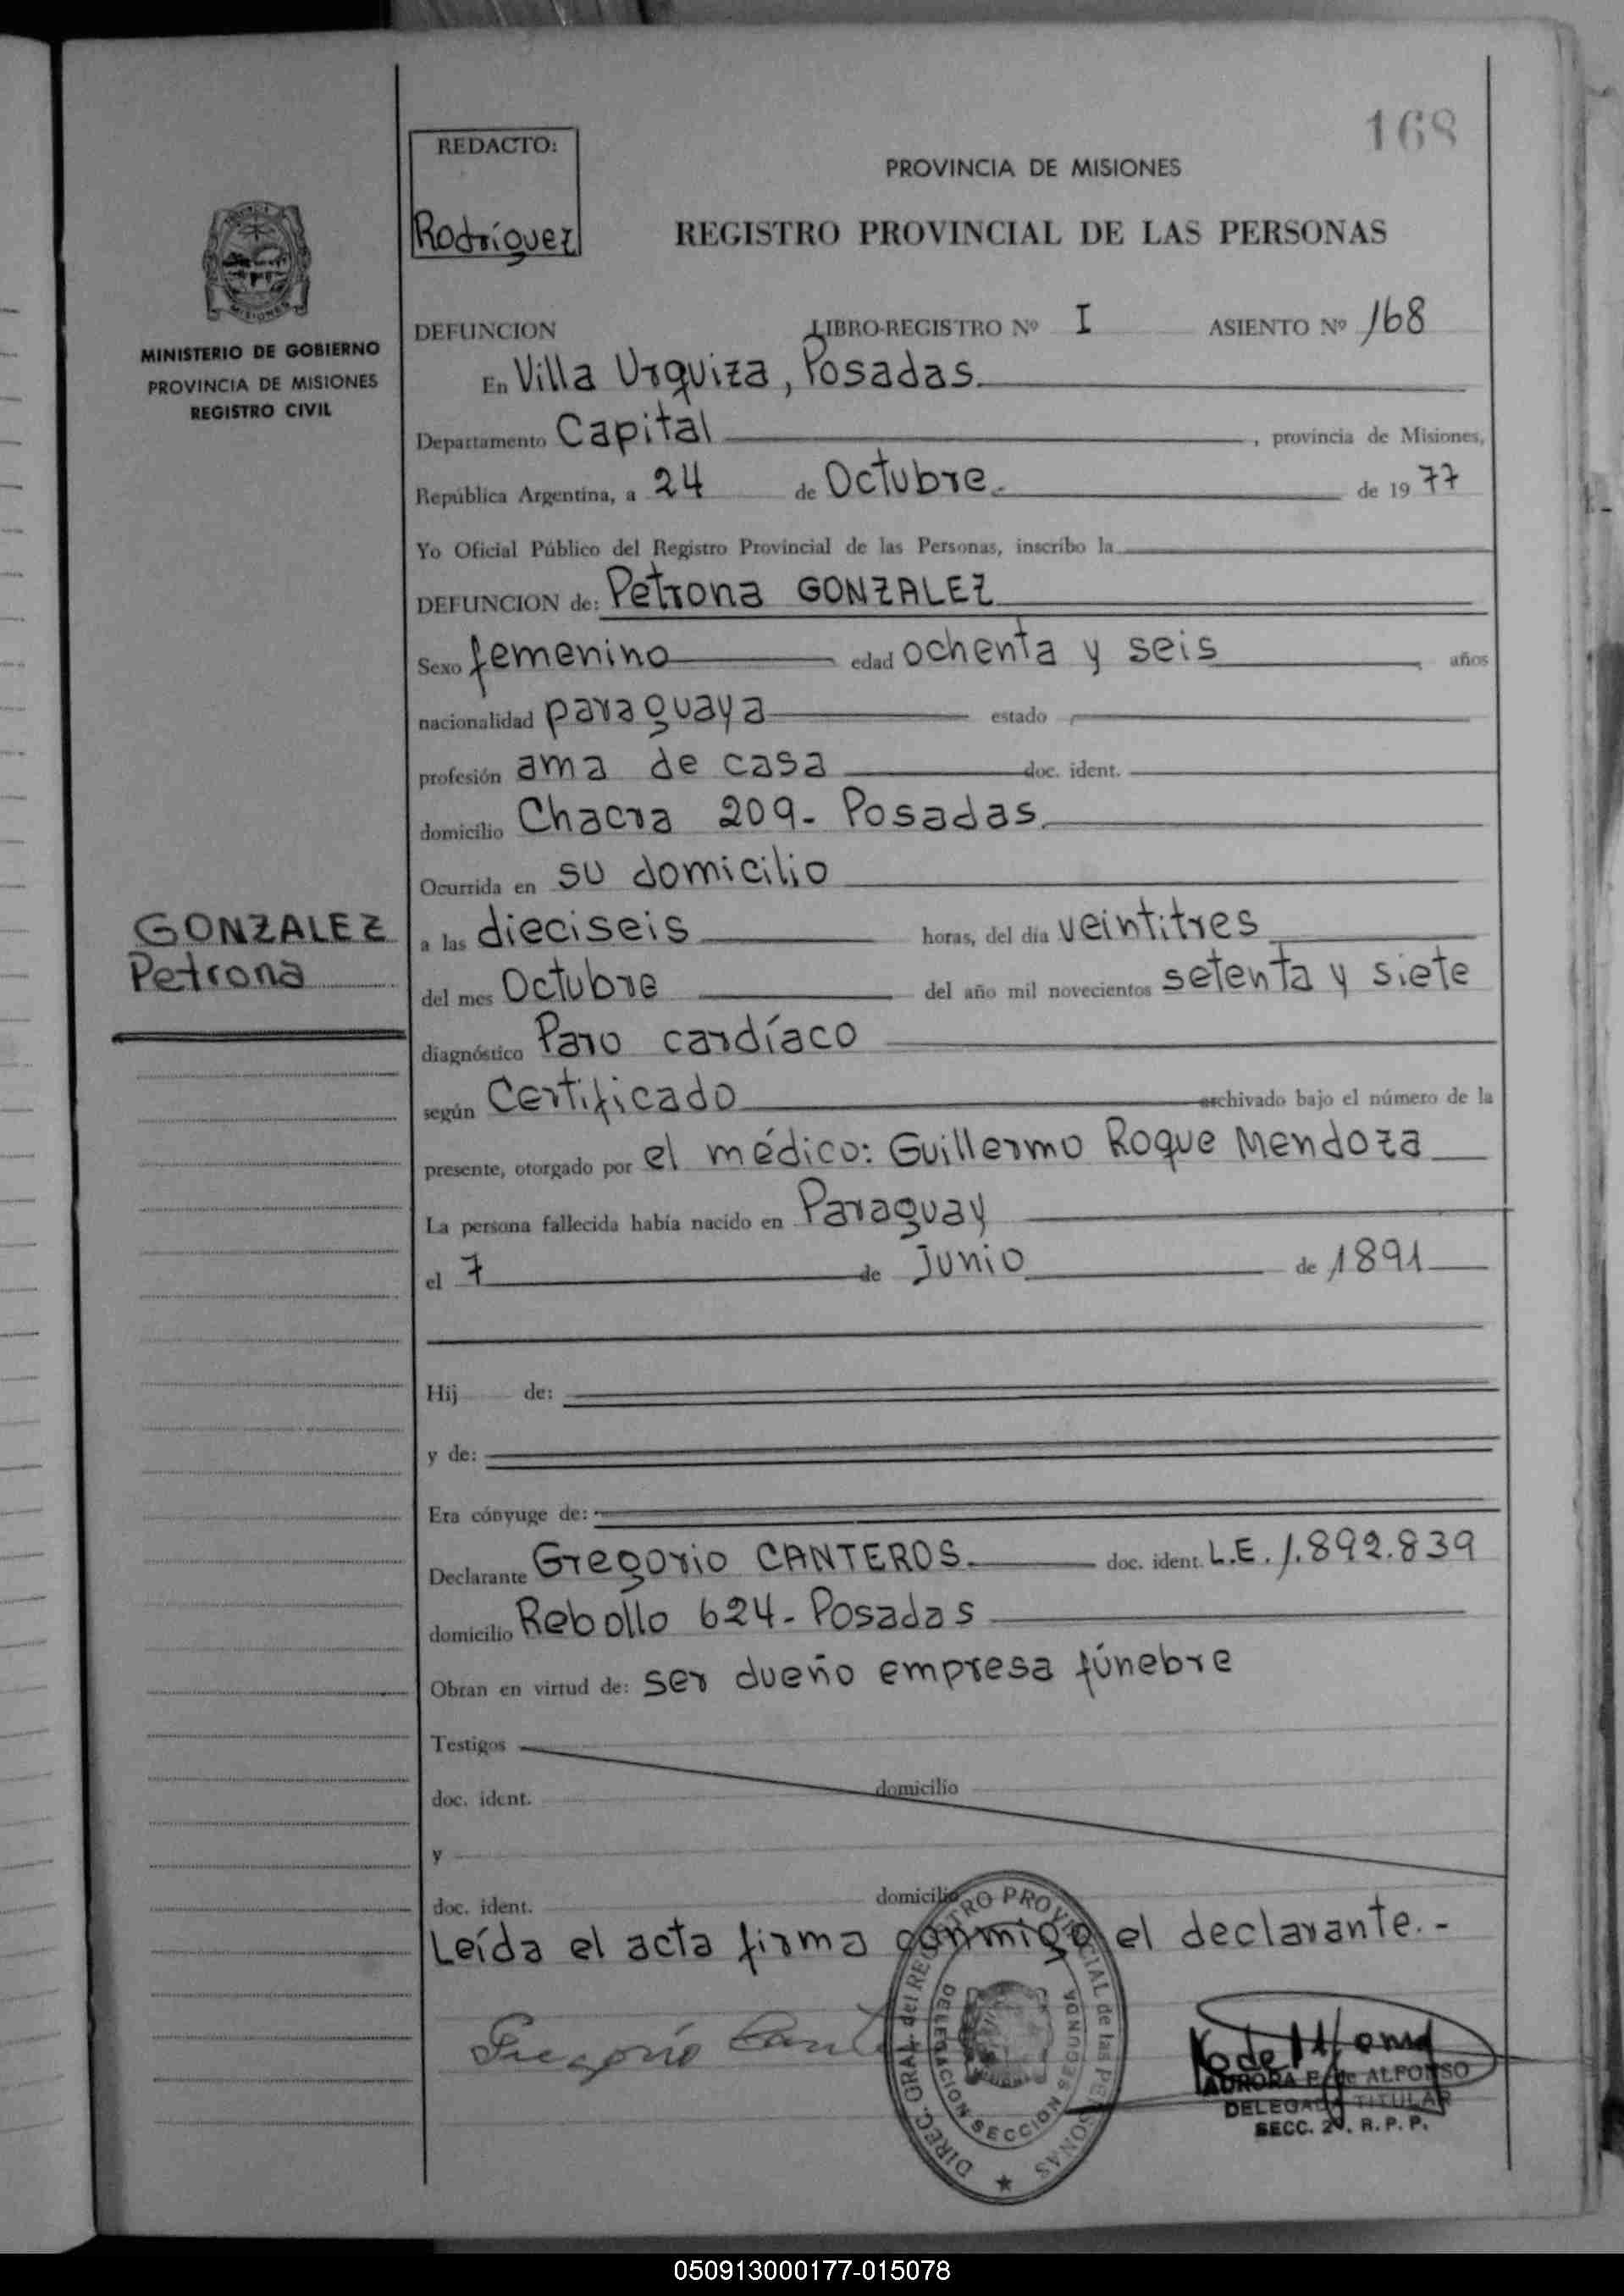 168
REDACTO:
Rodríguez
PROVINCIA DE MISIONES
REGISTRO PROVINCIAL DE LAS PERSONAS
MISIONES
MINISTERIO DE GOBIERNO
PROVINCIA DE MISIONES
REGISTRO CIVIL
DEFUNCION LIBRO-REGISTRO Nº I ASIENTO Nº 168
En Villa Urquiza, Posadas.
Departamento Capital, provincia de Misiones,
República Argentina, a 24 de Octubre. de 1977
Yo Oficial Público del Registro Provincial de las Personas, inscribo la
DEFUNCION de: Petrona GONZALEZ
Sexo femenino edad ochenta y seis, años
nacionalidad paraguaya estado
profesión ama de casa doc. ident.
domicilio Chacra 209- Posadas.
Ocurrida en su domicilio
GONZALEZ
Petrona
a las dieciseis horas, del día veintitres
del mes Octubre del año mil novecientos setenta y siete
diagnóstico Paro cardíaco
según Certificado archivado bajo el número de la
presente, otorgado por el médico: Guillermo Roque Mendoza
La persona fallecida había nacido en Paraguay
el 7 de Junio de 1891
Hij de:
y de:
Era cónyuge de:
Declarante Gregorio CANTEROS. doc. ident. L.E. 1.892.839
domicilio Rebollo 624- Posadas
Obran en virtud de: ser dueño empresa fúnebre
Testigos
doc. ident. domicilio
y
doc. ident. domicilio
Leída el acta firma conmigo el declarante.-
Gregorio
DIREC. GRAL. del REGISTRO PROVINCIAL de las PERSONAS
DELEGACION SECCION SEGUNDA
AURORA de ALFONSO
DELEGADA TITULAR
SECC. 2ª. R. P. P.
050913000177-015078